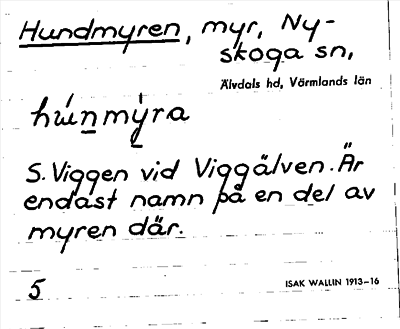 Hundmyren, myr, Ny-
skoga sn,
Älvdals hd, Värmlands län
húnmỳra
S. Viggen vid Viggälven. Är
endast namn på en del av
myren där.
5
ISAK WALLIN 1913-16